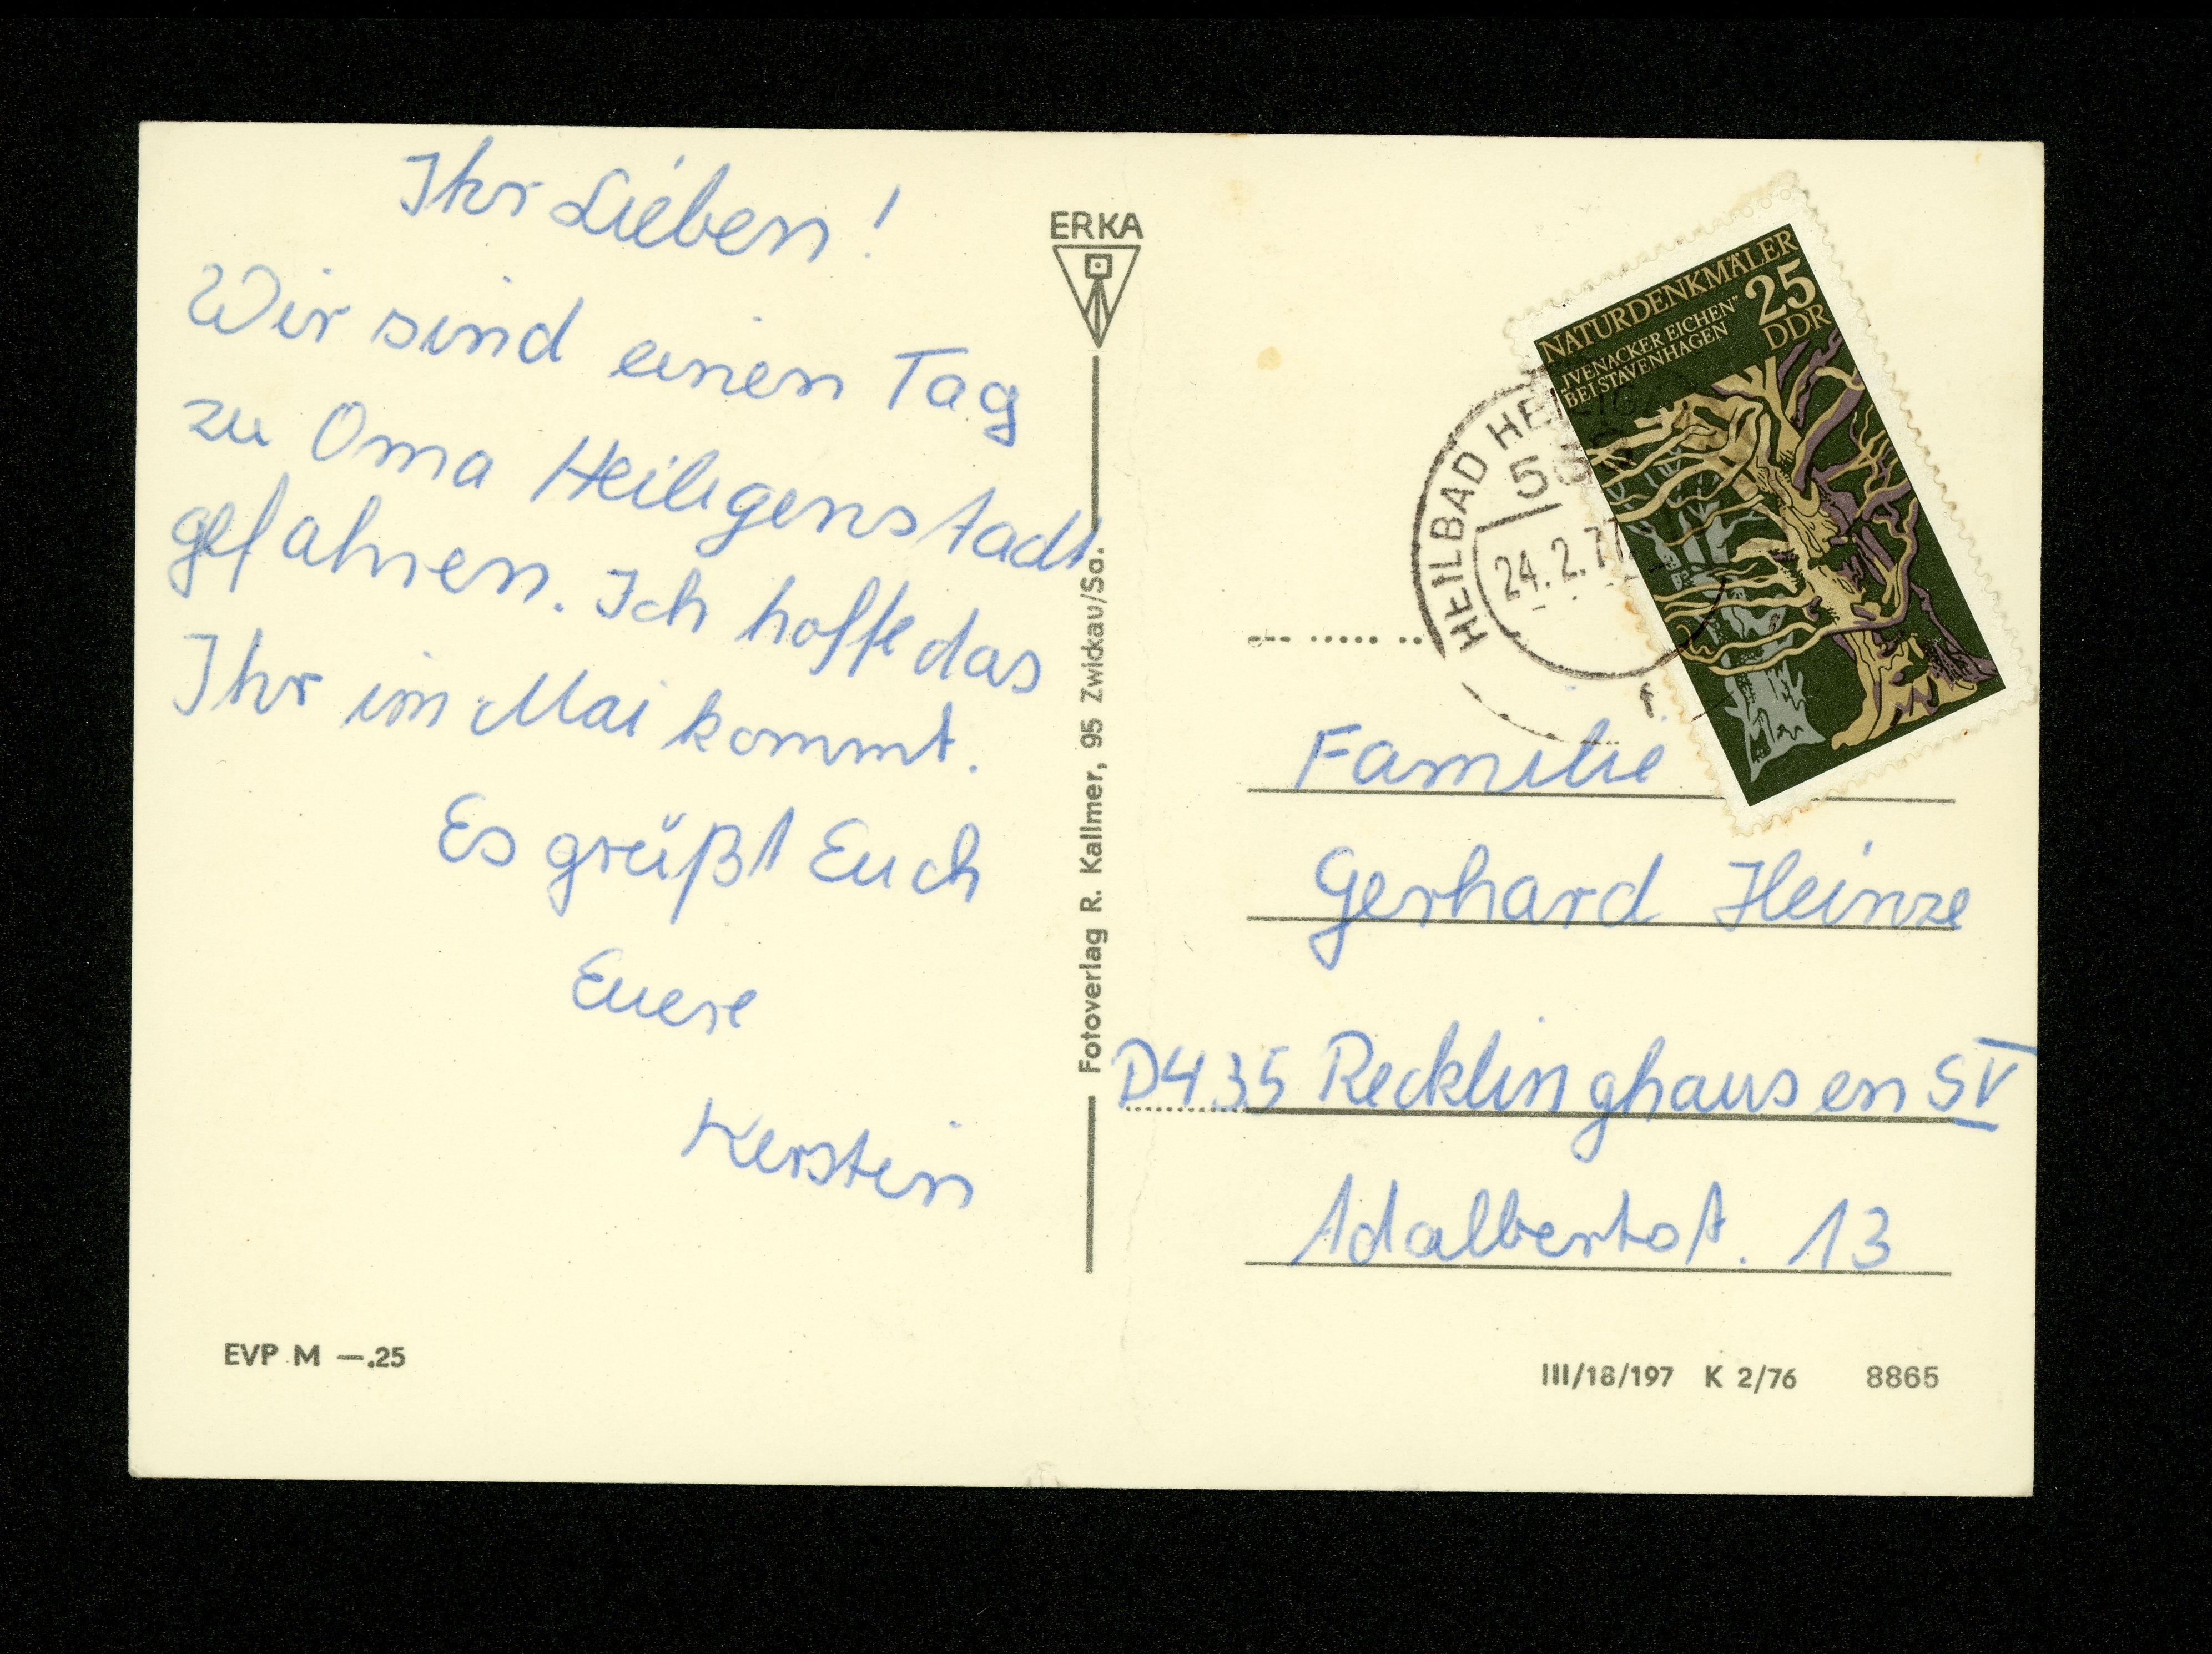 Ihr Lieben!
Wir sind einen Tag
zu Oma Heiligenstadt
gefahren. Ich hoffe das
Ihr im Mai kommt.
Es grüßt Euch
Euere
Kerstin
EVP M —.25
ERKA
Fotoverlag R. Kallmer, 95 Zwickau/Sa.
NATURDENKMÄLER
25
DDR
IVENACKER EICHEN"
BEI STAVENHAGEN
HEILBAD HEILIG
24.2.77
f
Familie
Gerhard Heinze
D435 Recklinghausen SV
Adalbertst. 13
III/18/197 K 2/76 8865